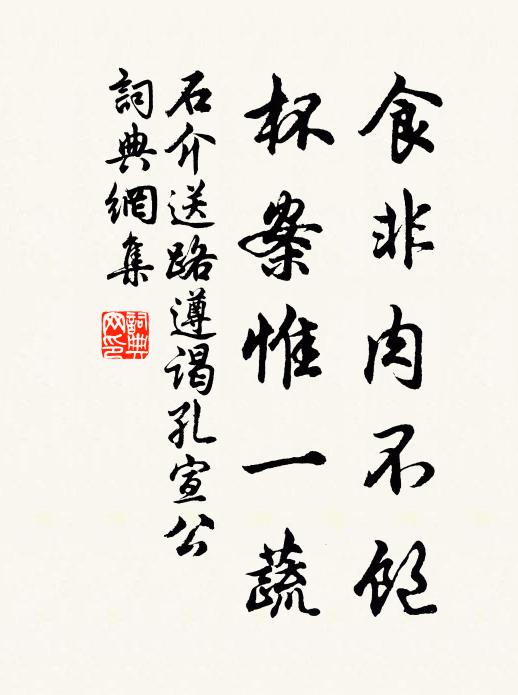 食非肉不飽
杯案惟一蔬
石介送路遵謁孔宣公
詞典網集
詞典網印